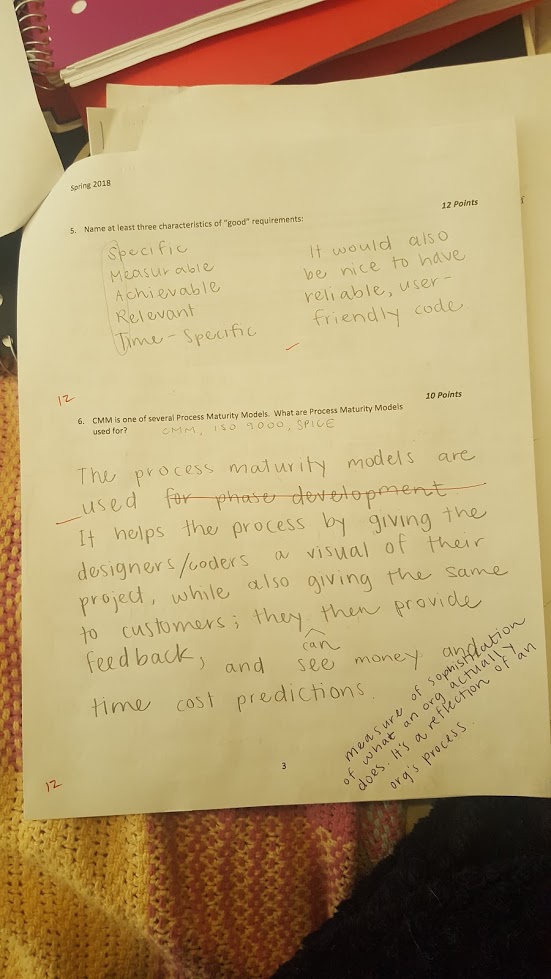 Spring 2018
12 Points
5. Name at least three characteristics of "good" requirements:
Specific
Measurable
Achievable
Relevant
Time-Specific
It would also
be nice to have
reliable, user-
friendly code
12
10 Points
6. CMM is one of several Process Maturity Models. What are Process Maturity Models
used for? CMM, ISO 9000, SPICE
The process maturity models are
used for phase development
It helps the process by giving the
designers/coders a visual of their
project, while also giving the same
to customers; they then provide
feedback, and can see money and
time cost predictions.
measure of sophistication
of what an org actually
does. It's a reflection of an
org's process.
3
12